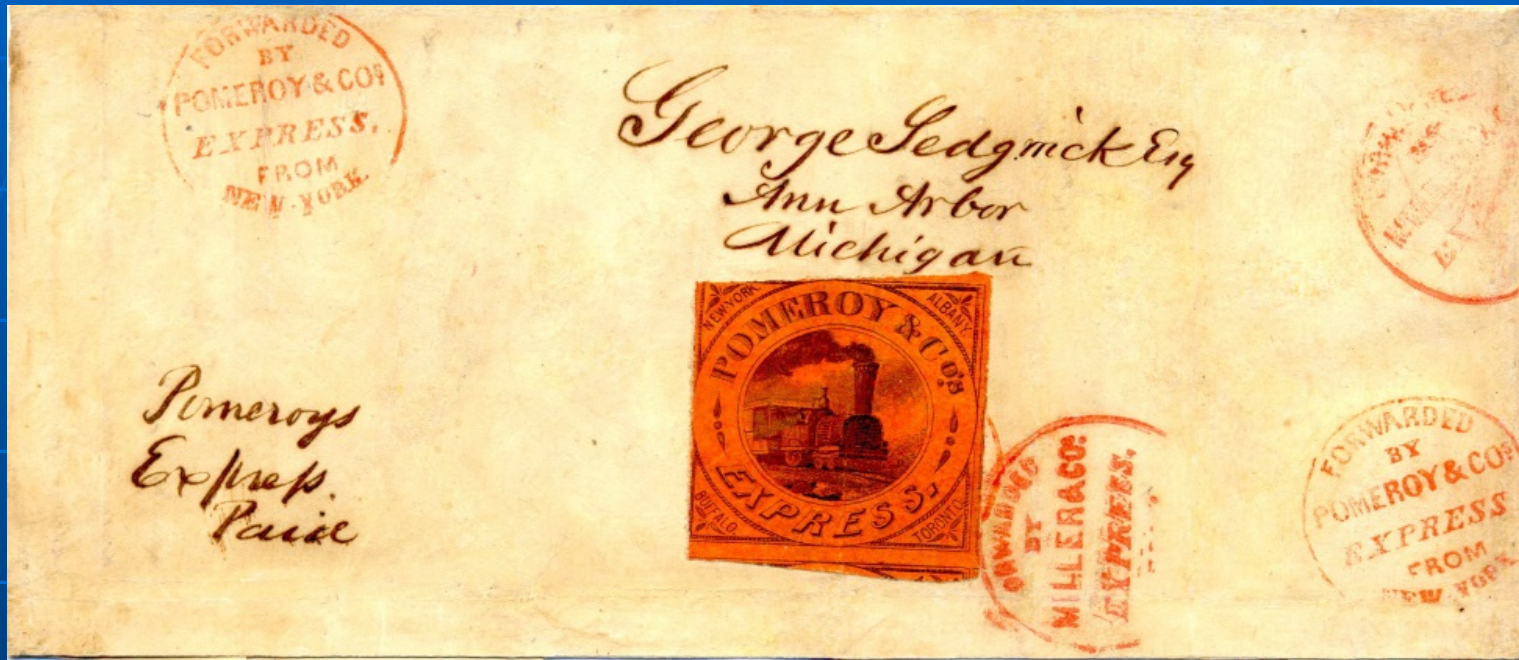 FORWARDED
BY
POMEROY & COS
EXPRESS.
FROM
NEW-YORK
George Sedgwick Esq
Ann Arbor
Michigan
Pomeroys
Express
Paid
NEW YORK
ALBANY.
POMEROY & CO'S
EXPRESS.
BUFFALO.
TORONTO.
FORWARDED
BY
MILLER & COS
EXPRESS.
FORWARDED
BY
POMEROY & COS
EXPRESS
FROM
NEW YORK